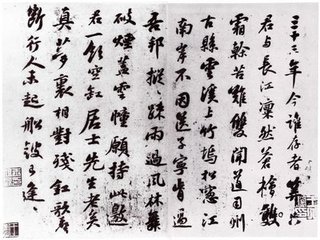 三十三年今誰存者算只
君与長江凜然蒼檜
霜幹苦難雙聞道司州
古縣雲溪上竹塢松窓江
南岸不因送子寧肯過
吾邦摐〻踈雨過風林舞
破煙蓋雲幢願持此邀
君一飲空缸居士先生老矣
真夢裏相對殘釭歌
斷行人未起船鼓已逢〻